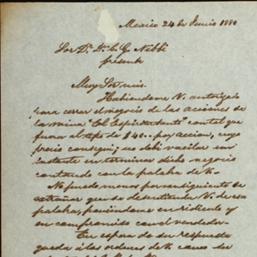 Mexico 24 de Junio 1880
Sor Dn
presente
Muy Sor mio.
Habiendome V. autorizado
para cerrar el negocio de las acciones de
la mina "El Espiritu Santo" con tal que
fuera al tipo de $40.. por accion, cuyo
precio consegui; no debi vacilar un
instante en terminar dicho negocio
contando con la palabra de V.
No puedo menos por consiguiente de
extrañar que V. de su
palabra, poniendome en ridiculo y
en compromiso con el vendedor.
En espera de su respuesta
queda a las ordenes de V. como su